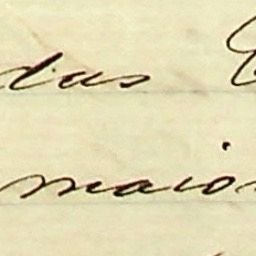 das
maior